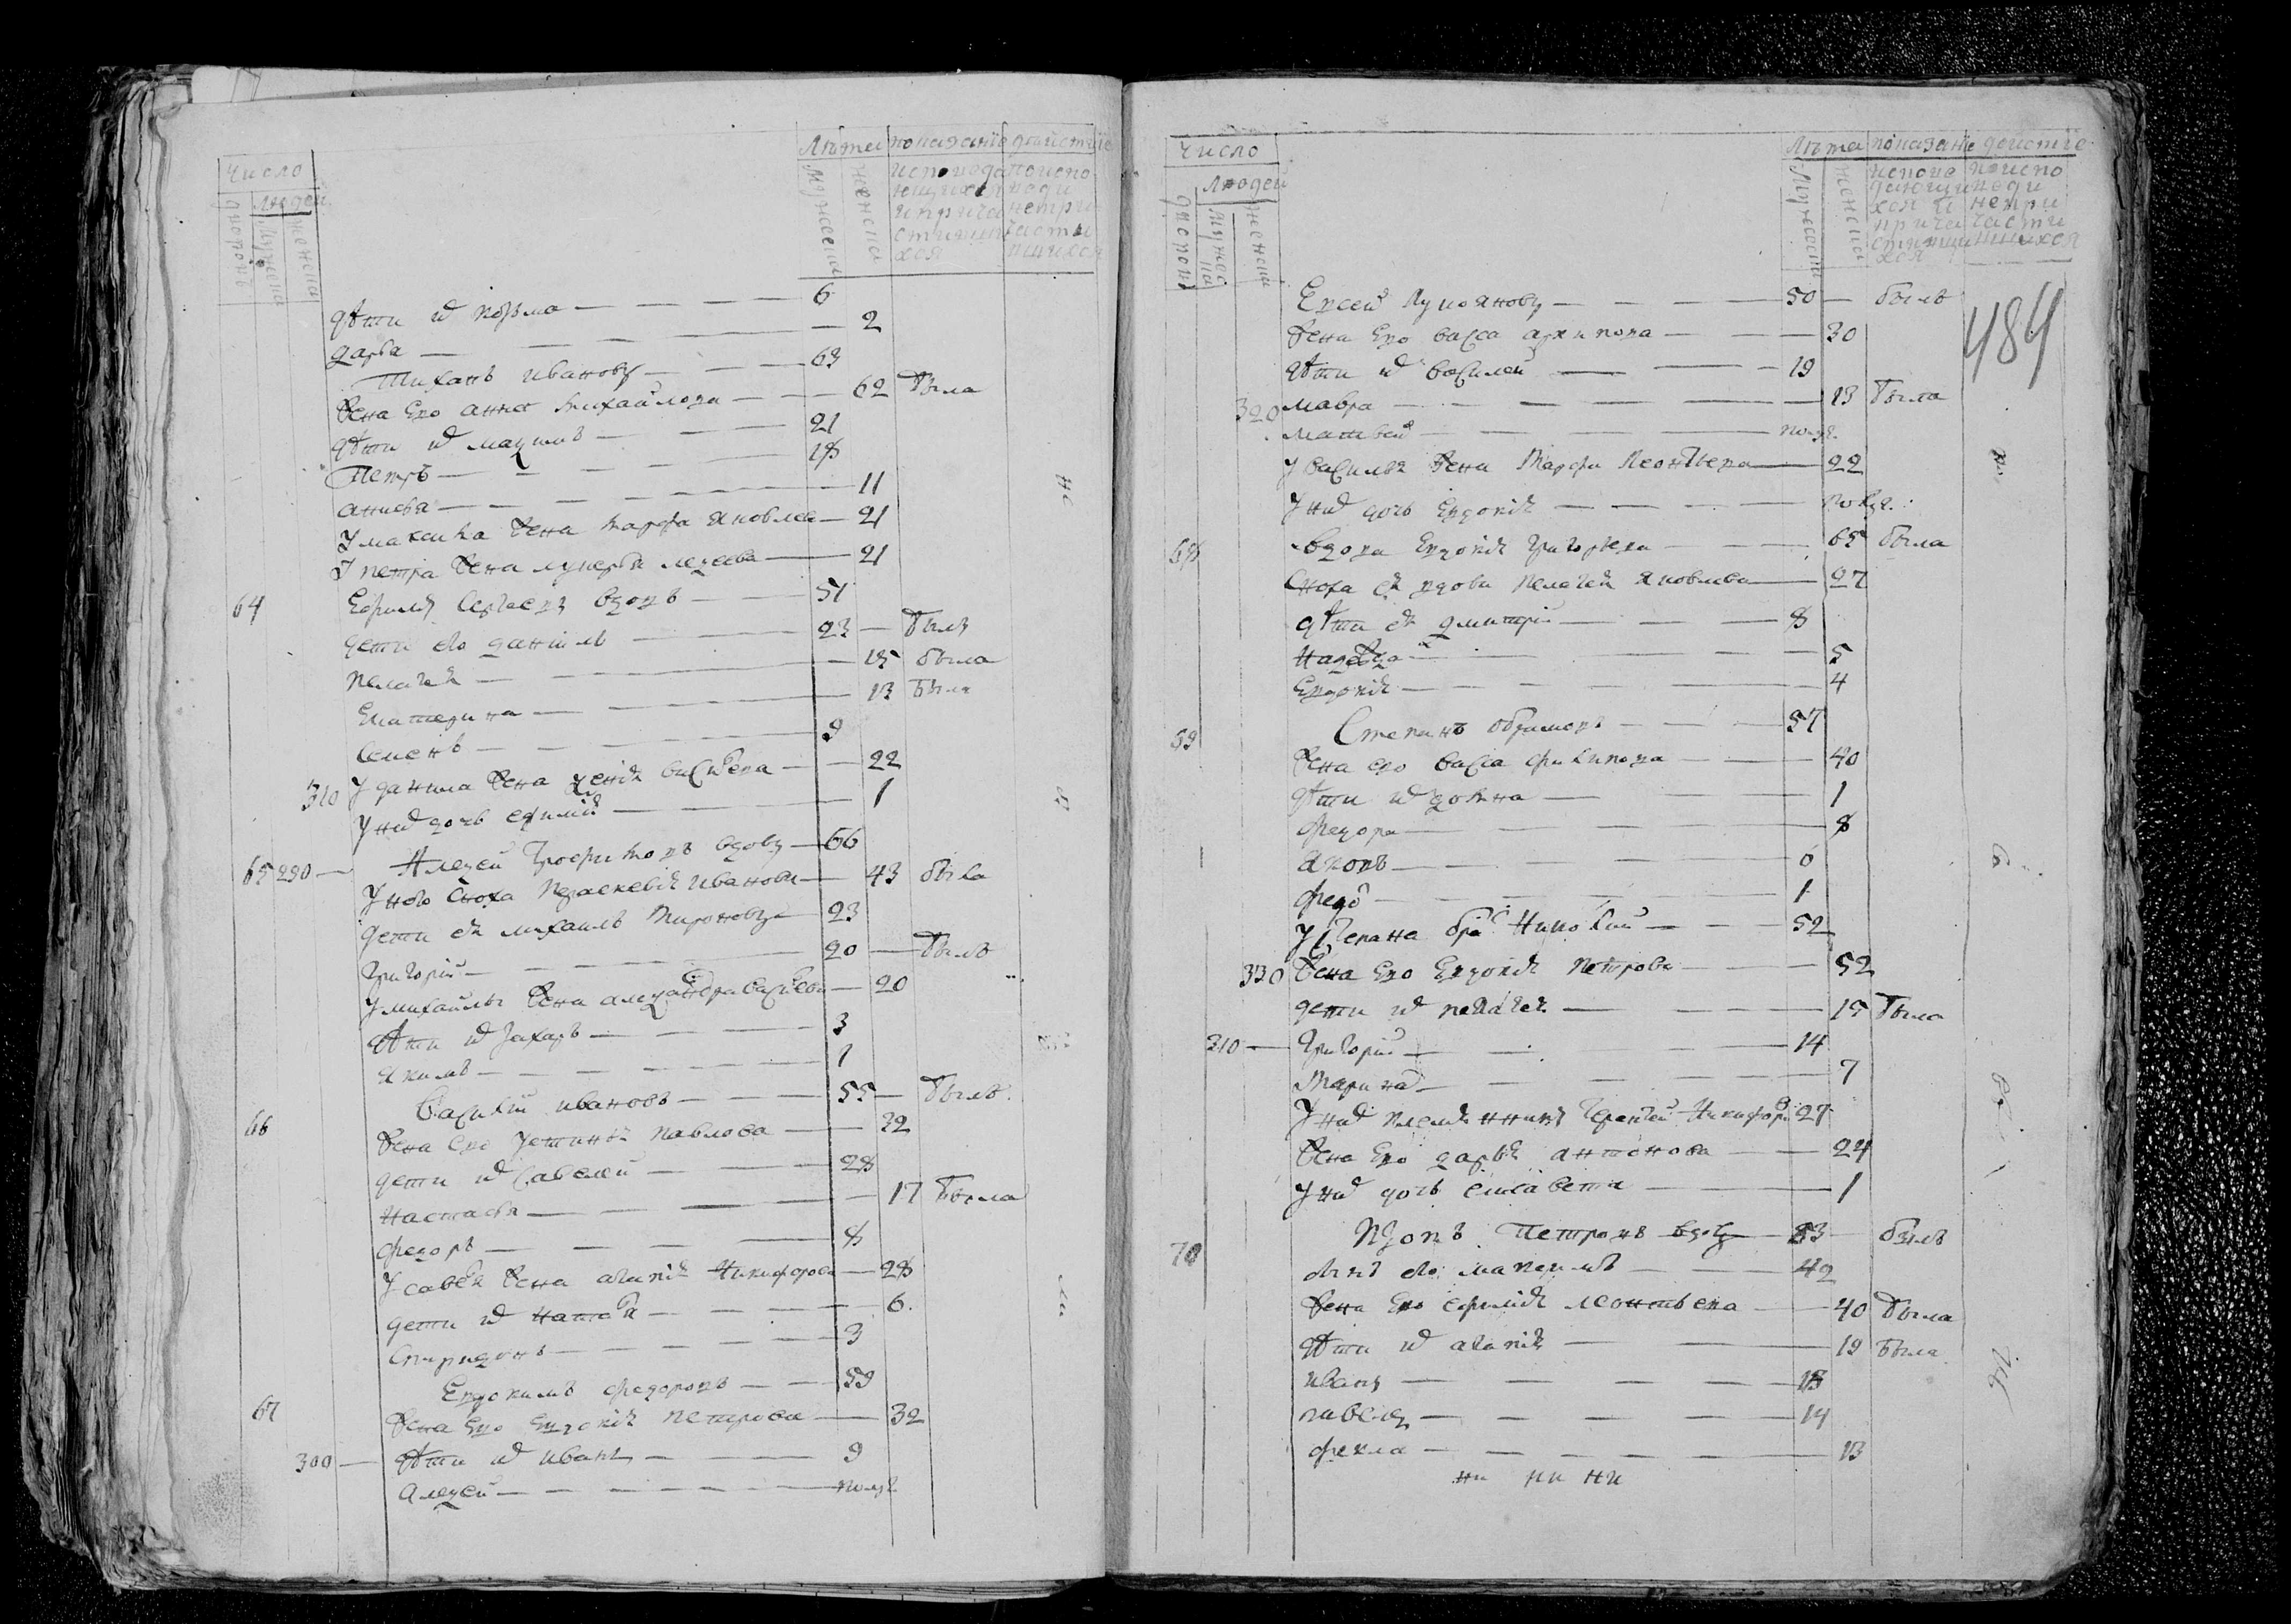 число
людей
дворовъ
мужеска
женска
Лѣта
показаніе дѣйствія
мужеска
женска
исповеда
ющихся
и прича
стивши
хся
по испо
веди
не при
части
вшихся
дѣти их козма — 6
дарья — 2
Тиханъ Ивановъ — 63
жена Его анна михайлова — 62 была
дѣти их маѯимъ — 21
Петръ — 18
анисья — 11
У максима жена марфа яковлев — 21
У петра жена лукерья алеѯеева — 21
64 Ефимъ Сергеевъ вдовъ — 51
дети его данилъ — 23 — былъ
пелагея — 15 была
Екатерина — 13 была
Семенъ — 9
310 У данила жена ѯенія васильева — 22
У них дочь ефимия — 1
65 290 — Алеѯей Трофимовъ вдовъ — 66
У него сноха Параскевия Иванова — 43 была
дети ея михаилъ Мироновъ — 23
Григорий — 20 — былъ
У михайлы жена алеѯандра васильева — 20
дѣти их Захаръ — 3
Якимъ — 1
66 Василий ивановъ — 55 — былъ
жена Его устинья павлова — 32
дети их савелей — 28
настасья — 17 была
федоръ — 8
У савелья жена агапия Никифорова — 28
дети их наталья — 6
Спиридонъ — 3
67 Евдокимъ федоровъ — 59
жена Его Евдокия петрова — 32
300 — дѣти их иванъ — 9
Алеѯей — полгода
число
людей
дворовъ
мужеска
женска
Лѣта
показание действие
мужеска
женска
испове
дающи
хся и
прича
стивши
хся
по испо
веди
не при
части
вшихся
484
Евсей Лукояновъ — 50 — былъ
жена Его васса архипова — 30
дѣти их василей — 19
320 мавра — 13 была
матвей — полг.
У василья жена Марфа Леонтьева — 22
У них дочь Евдокия — полг.
68 вдова Евдокия Григорьева — 65 была
Сноха ея вдова пелагея яковлева — 27
дѣти ея дмитрий — 8
Надежда — 5
Евдокия — 4
69 Степанъ Абрамовъ — 57
жена его васса филипова — 40
дѣти их домна — 1
федора — 8
яковъ — 6
федо — 1
У Степана бра Николай — 52
330 жена Его Евдокия петрова — 52
дети их пелагея — 15 была
310 — Григорий — 14
Марина — 7
У них племянникъ Терентей Никифоро 27
жена Его дарья антонова — 24
У них дочь елисавета — 1
70 Прокъ Петровъ вдовъ — 83 — былъ
сынъ его максимъ — 42
жена Его ефимия леонтьева — 40 была
дѣти их агапия — 19 была
иванъ — 18
павелъ — 14
фекла — 13